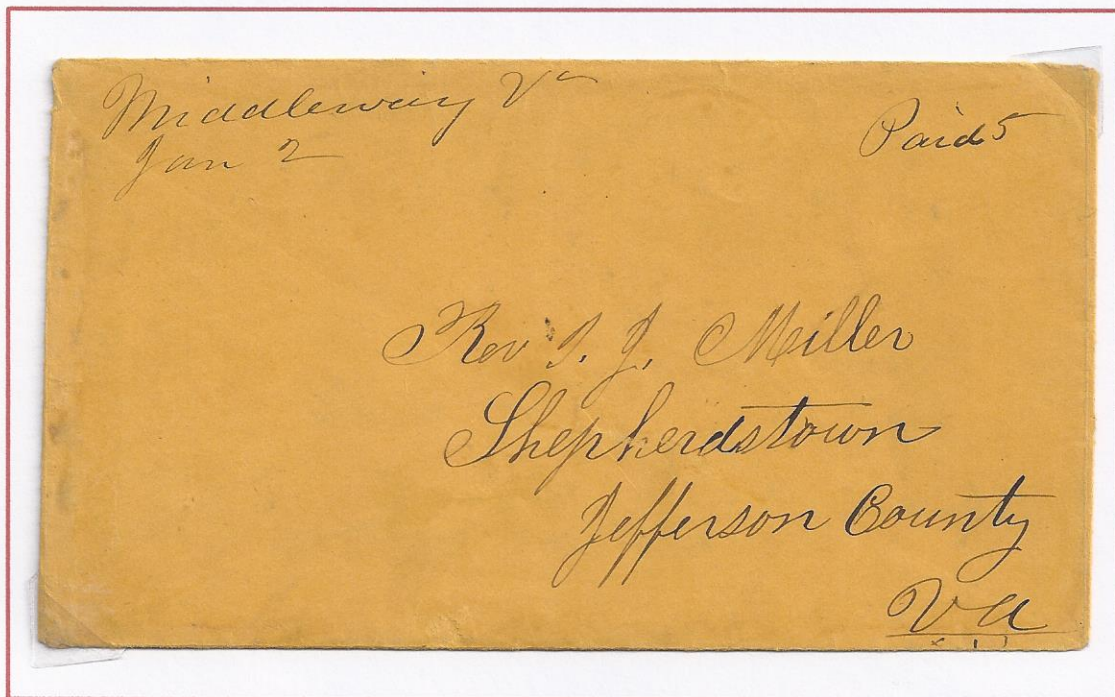 Middleway Va
Paid 5
Jan 2
Rev J. J. Miller
Shepherdstown
Jefferson County
Va